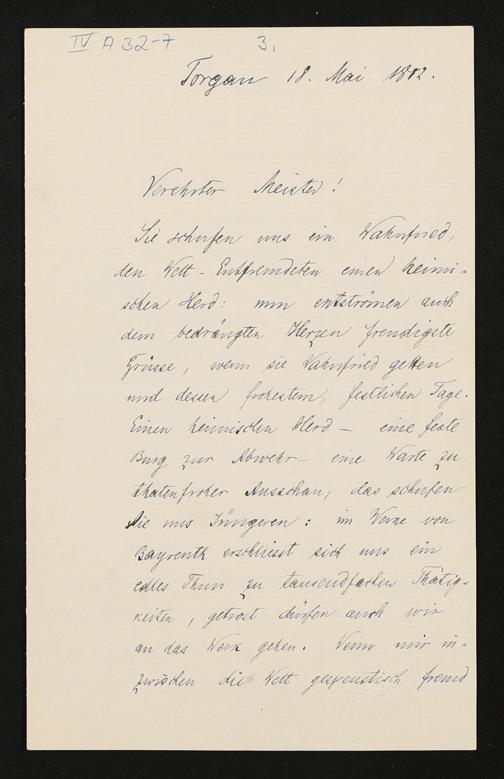 IV A 32-7
3.
Torgau 18. Mai 1882.
Verehrter Meister!
Sie schufen uns ein Wahnfried,
den Welt-Entfremdeten einen heimi-
schen Herd: nun entströmen auch
dem bedrängten Herzen freudigste
Grüsse, wenn sie Wahnfried gelten
und dessen frohestem, festlichen Tage.
Einen heimischen Herd – eine feste
Burg zur Abwehr – eine Warte zu
thatenfroher Ausschau, das schufen
Sie uns Jüngeren: im Werke von
Bayreuth erschliesst sich uns ein
edles Thun zu tausendfachen Thätig-
keiten, getrost dürfen auch wir
an das Werk gehen. Wenn mir in-
zwischen die Welt gespenstisch fremd